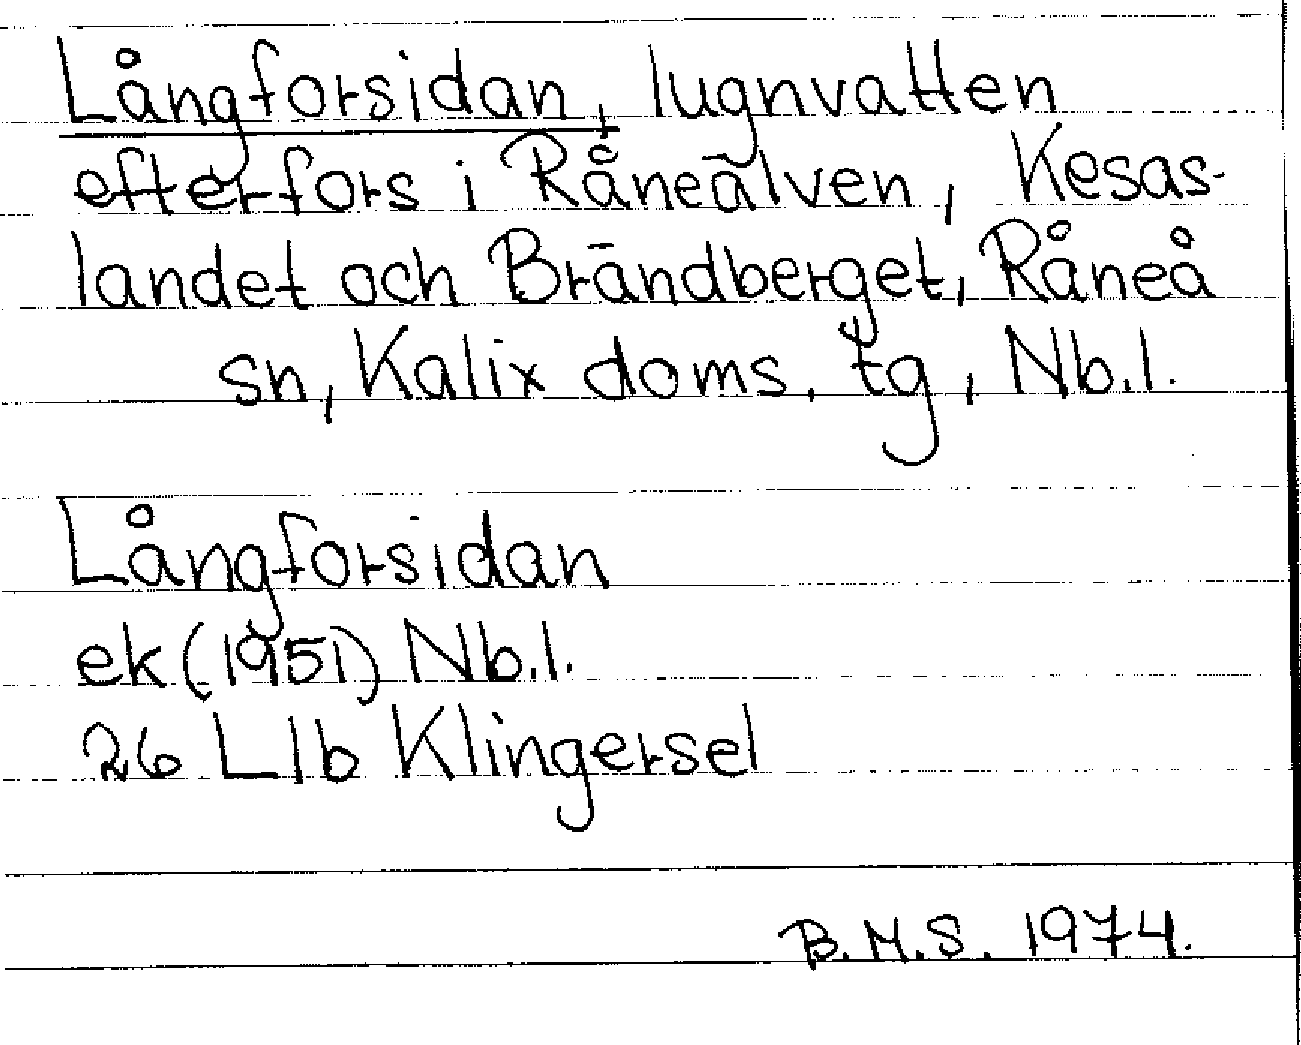 Långforsidan, lugnvatten
efter fors i Råneälven, Kesas-
landet och Brändberget, Råneå
sn, Kalix doms. tg, Nb.l.
Långforsidan
ek (1951) Nb.l.
26 L1b Klingersel
B.M.S. 1974.